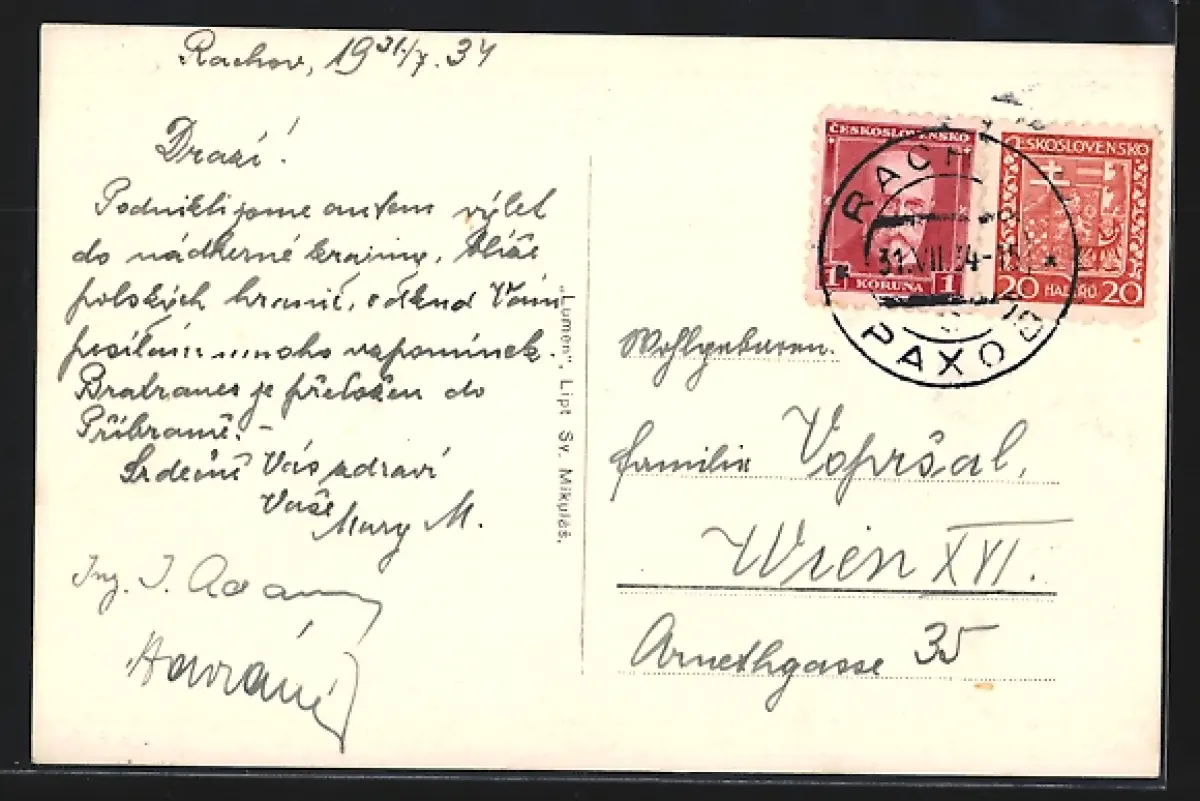 Rachov, 19 31./7. 34
Drazí!
Podnikli jsme autem výlet
do nádherné krajiny, blíže
polských hranic, odkud Vám
posílám mnoho vzpomínek.
Bratranec je přeložen do
Příbramě. –
Srdečně Vás zdraví
Vaše
Mary M.
Ing. J.
"Lumen", Lipt Sv. Mikuláš.
ČESKOSLOVENSKO
1 KORUNA 1
ČESKOSLOVENSKO
20 HALÉŘŮ 20
31.VII.34-15
РАХО
Wohlgeboren.
familie Vopršal,
Wien XVI.
Arnethgasse 35